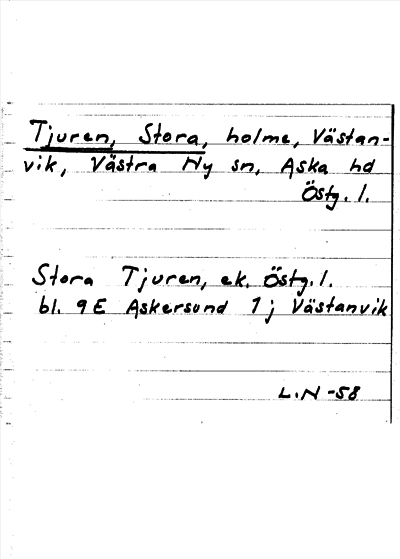 Tjuren, Stora, holme, Västan-
vik, Västra Ny sn, Aska hd
Östg. l.
Stora Tjuren, ek. Östg. l.
bl. 9E Askersund 1j Västanvik
L.N -58